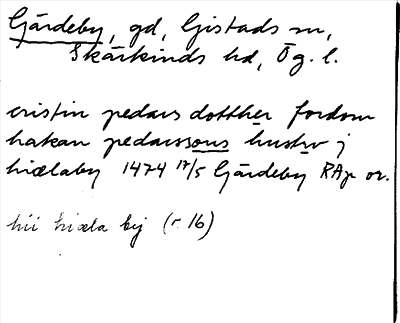 Gärdeby, gd, Gistads sn,
Skärkinds hd, Ög. l.
cristin pedars dotther fordom
hakan pedarssons hustrv j
hiælaby 1474 17/5 Gärdeby RAp or.
hii hiæla by (r 16)